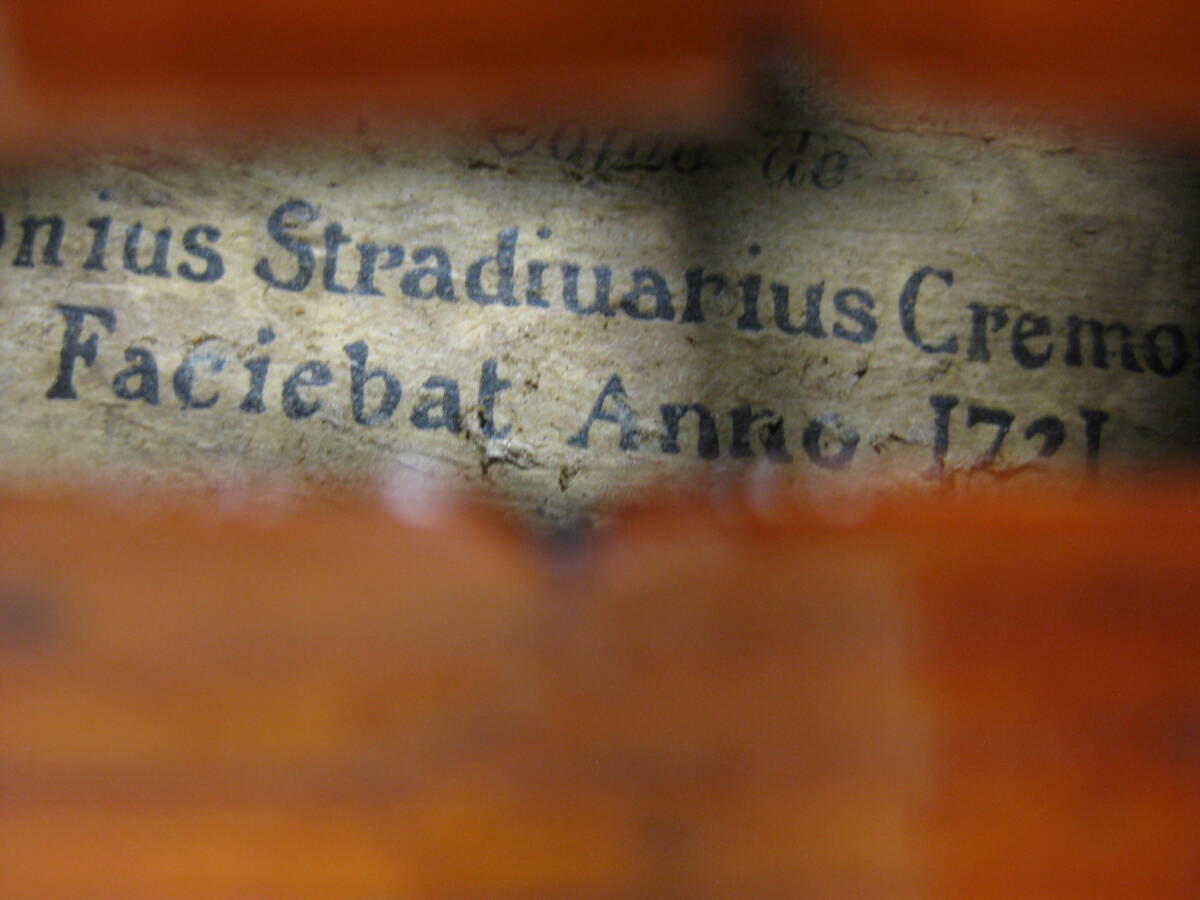 Copie de
onius Stradiuarius Cremon
Faciebat Anno 1721